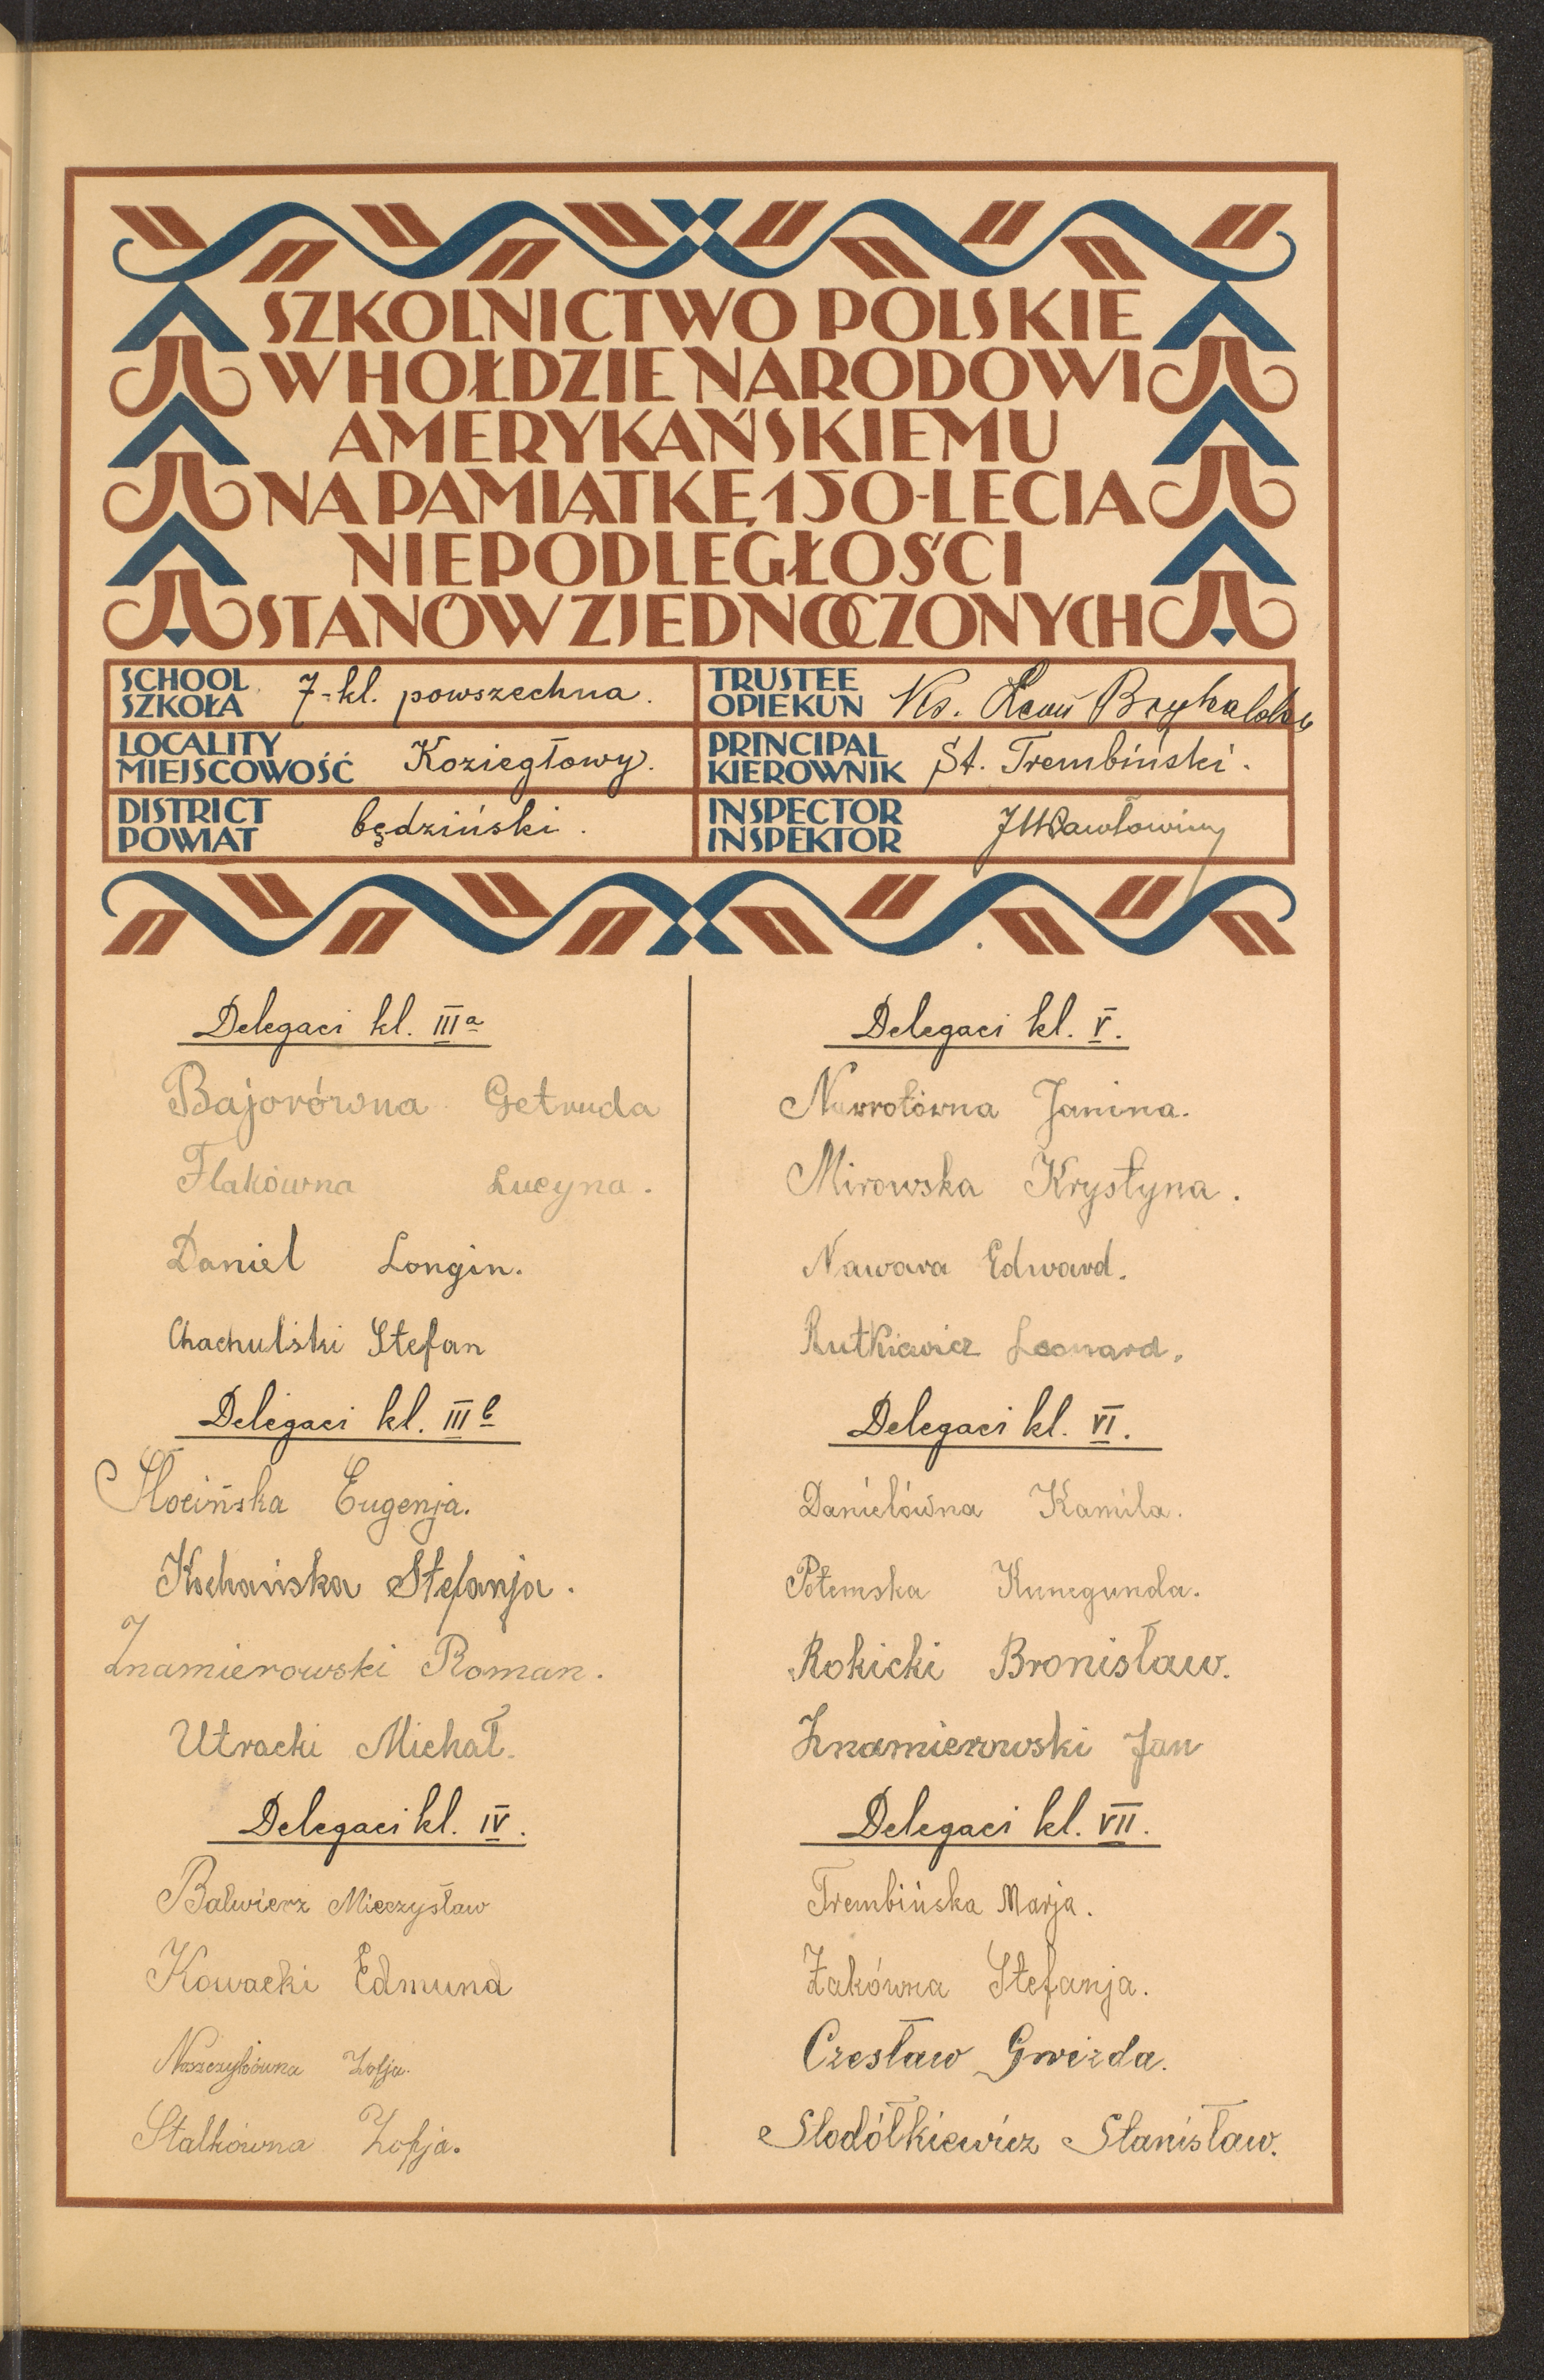 SZKOLNICTWO POLSKIE
W HOŁDZIE NARODOWI
AMERYKAŃSKIEMU
NA PAMIĄTKĘ 150-LECIA
NIEPODLEGŁOŚCI
STANÓW ZJEDNOCZONYCH
SCHOOL
SZKOŁA 7-kl. powszechna.
LOCALITY
MIEJSCOWOŚĆ Koziegłowy.
DISTRICT
POWIAT będziński.
TRUSTEE
OPIEKUN Ks.
PRINCIPAL
KIEROWNIK St. Trembiński.
INSPECTOR
INSPEKTOR
Delegaci kl. III a
Bajorówna Getruda
Flakówna Lucyna.
Daniel Longin.
Chachulski Stefan
Delegaci kl. III b
Słocińska Eugenja.
Kochańska Stefanja.
Znamierowski Roman.
Utracki Michał.
Delegaci kl. IV.
Balwierz Mieczysław
Kowacki Edmund
Zofja.
Stalkówna Zofja.
Delegaci kl. V.
Nawrotówna Janina.
Mirowska Krystyna.
Nawara Edward.
Rutkiewicz Leonard.
Delegaci kl. VI.
Danielówna Kamila.
Potemska Kunegunda.
Rokicki Bronisław.
Znamierowski Jan
Delegaci kl. VII.
Trembińska Marja.
Żakówna Stefanja.
Czesław Gwizda.
Słodółkiewicz Stanisław.